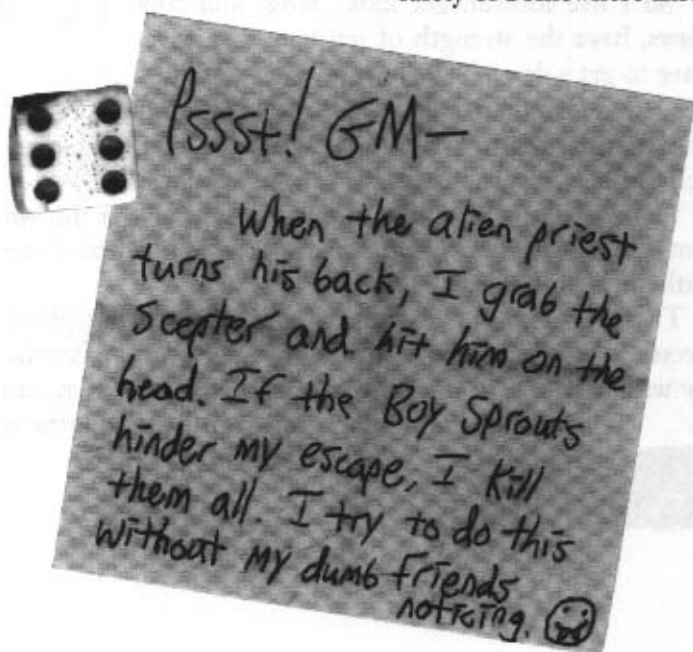 Pssst! GM—
When the alien priest
turns his back, I grab the
scepter and hit him on the
head. If the Boy Sprouts
hinder my escape, I kill
them all. I try to do this
without my dumb friends
noticing.